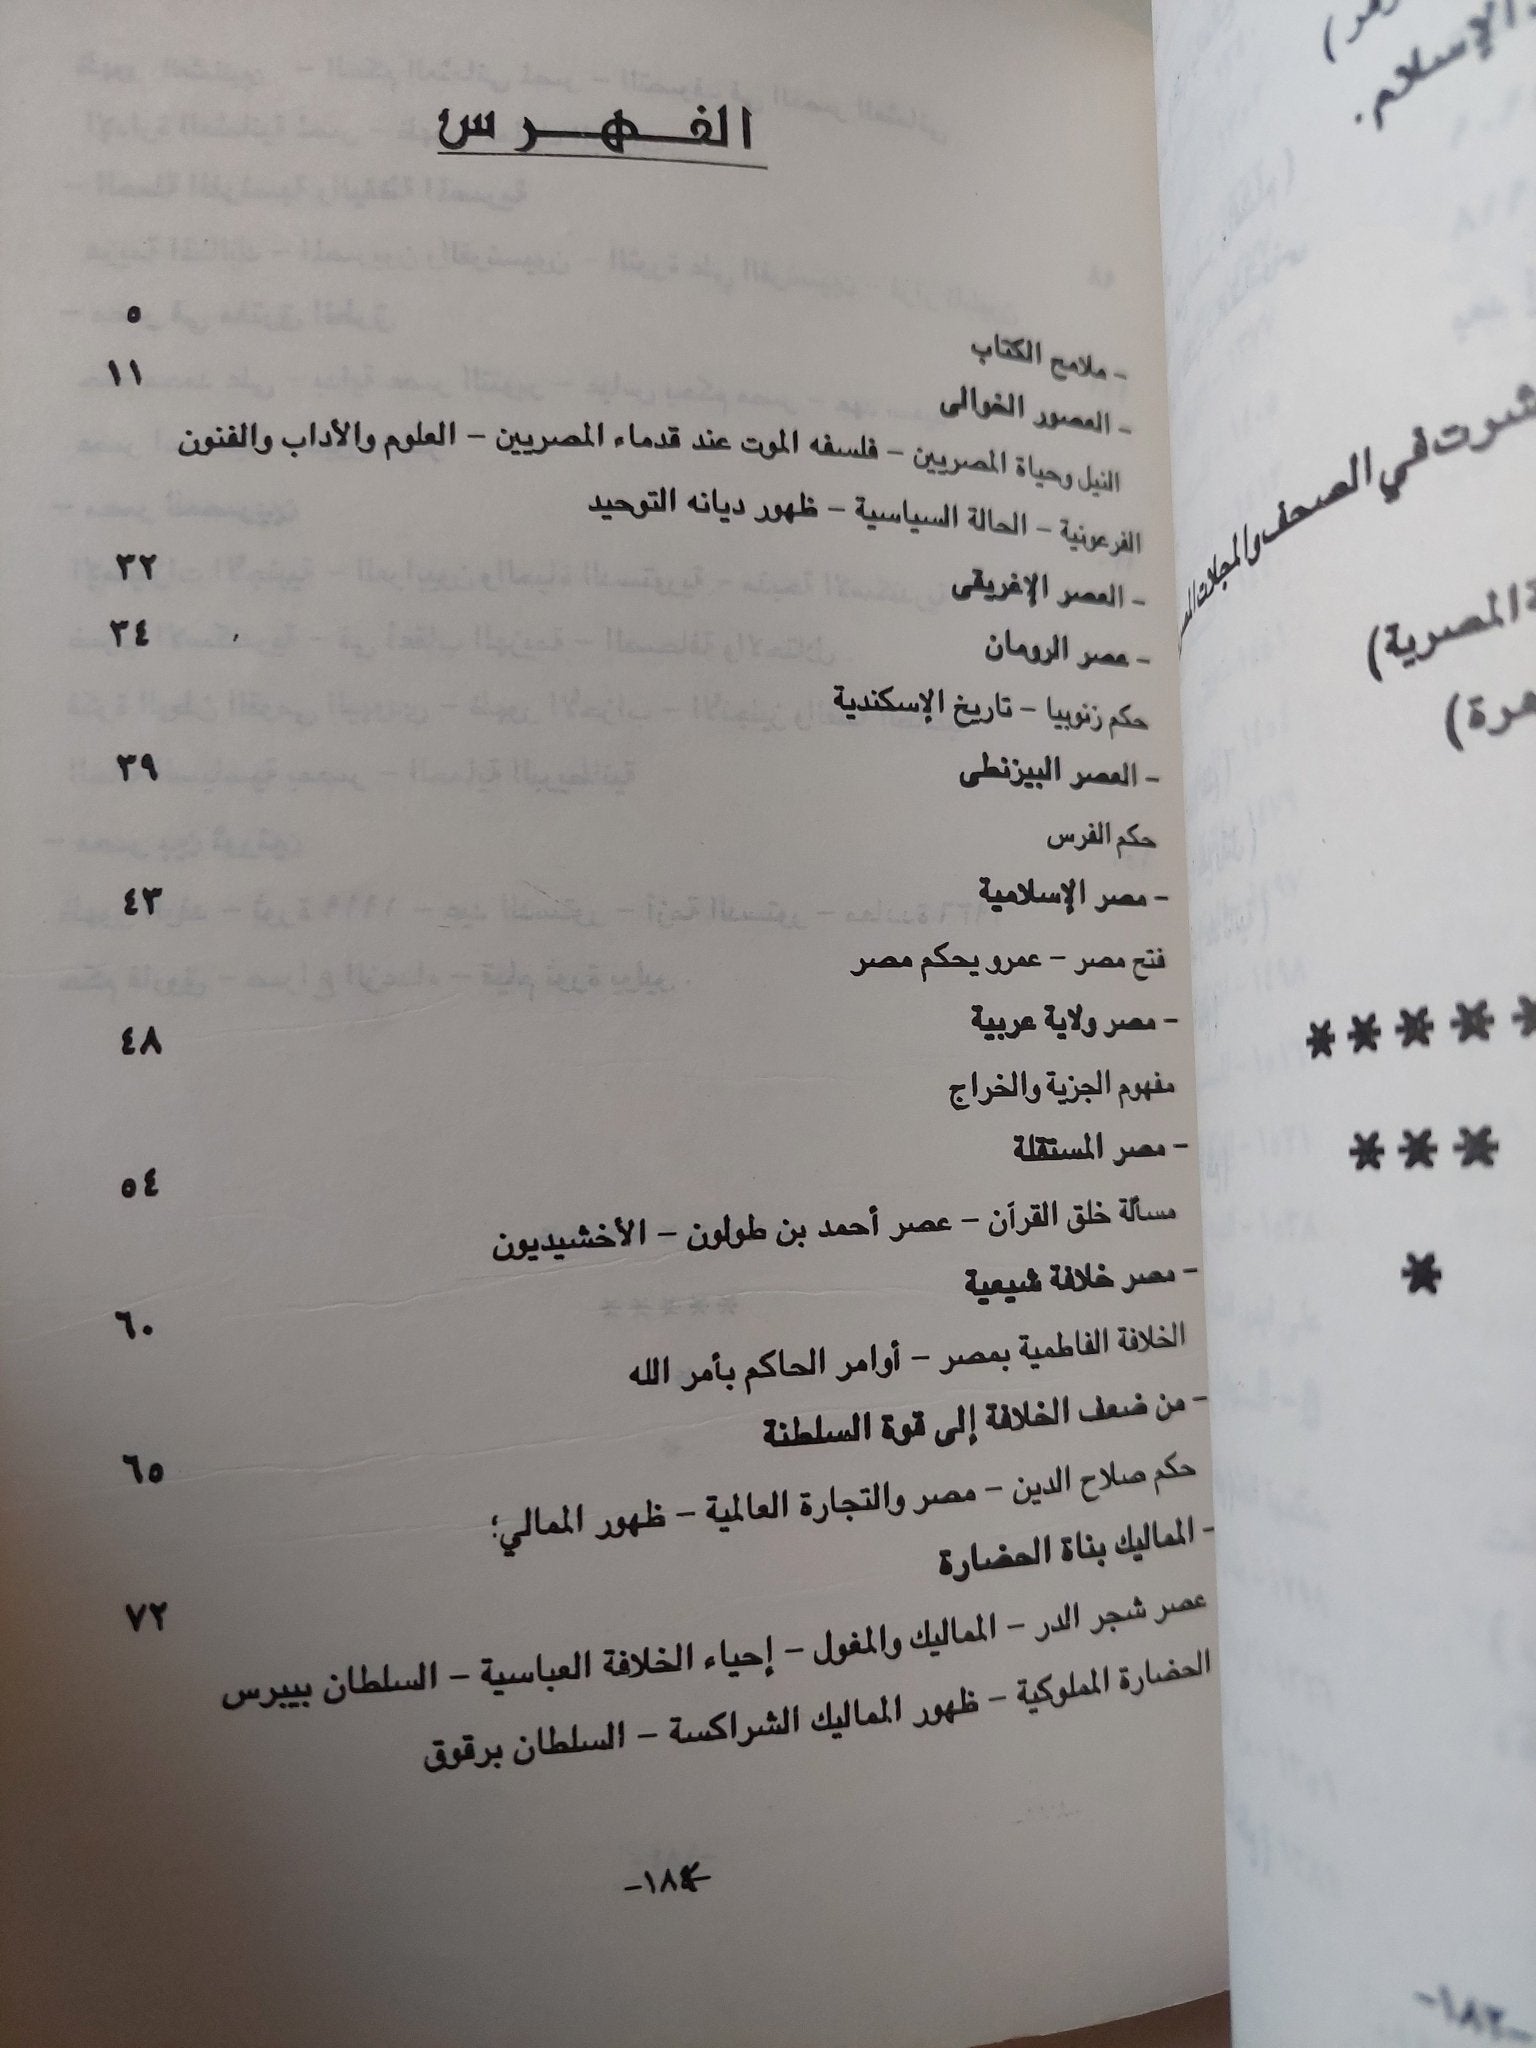 الفهرس
- ملامح الكتاب ٥
- العصور الخوالى ١١
النيل وحياة المصريين - فلسفه الموت عند قدماء المصريين - العلوم والأداب والفنون
الفرعونية - الحالة السياسية - ظهور ديانه التوحيد
- العصر الإغريقى ٣٢
- عصر الرومان ٣٤
حكم زنوبيا - تاريخ الإسكندية
- العصر البيزنطى ٣٩
حكم الفرس
- مصر الإسلامية ٤٣
فتح مصر - عمرو يحكم مصر
- مصر ولاية عربية ٤٨
مفهوم الجزية والخراج
- مصر المستقلة ٥٤
مسألة خلق القرآن - عصر أحمد بن طولون - الأخشيديون
- مصر خلافة شيعية ٦٠
الخلافة الفاطمية بمصر - أوامر الحاكم بأمر الله
- من ضعف الخلافة إلى قوة السلطنة ٦٥
حكم صلاح الدين - مصر والتجارة العالمية - ظهور
- المماليك بناة الحضارة ٧٢
عصر شجر الدر - المماليك والمغول - إحياء الخلافة العباسية - السلطان بيبرس
الحضارة المملوكية - ظهور المماليك الشراكسة - السلطان برقوق
الإسلام.
شرت في الصحف والمجلات
المصرية)
هرة)
*****
***
*
-١٨٢-